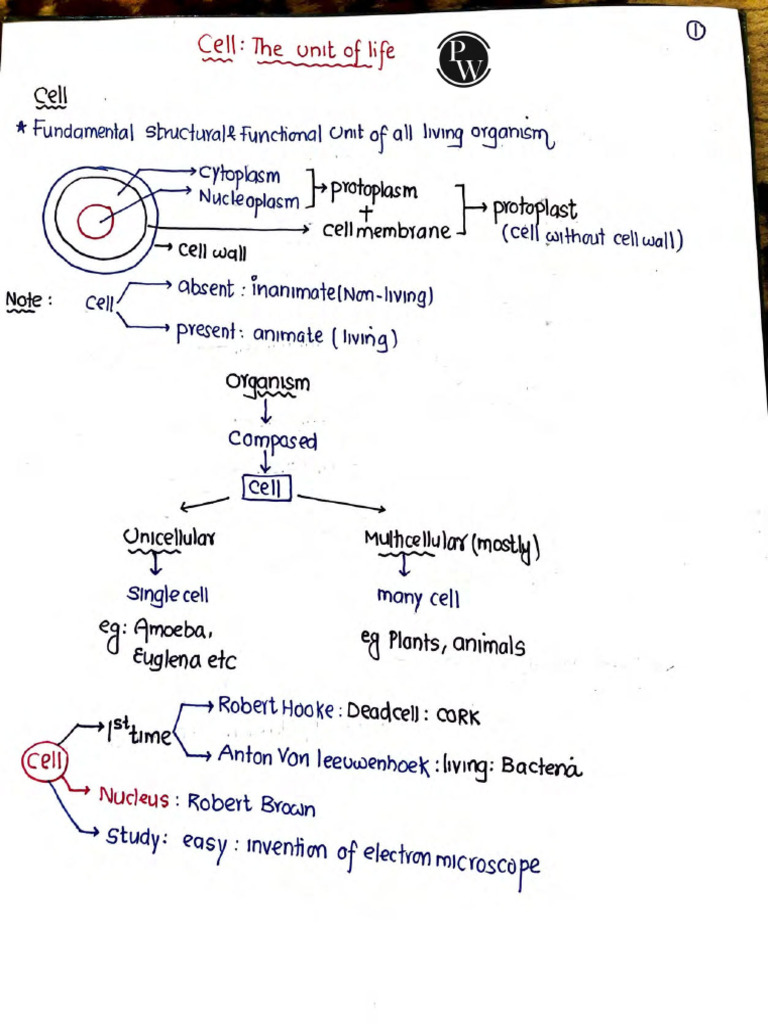 ①
Cell: The unit of life
PW
Cell
* Fundamental structural & functional unit of all living organism
Cytoplasm
Nucleoplasm
protoplasm
+
cell membrane
protoplast
(cell without cell wall)
cell wall
Note: Cell
absent: inanimate (Non-living)
present: animate (living)
Organism
Composed
Cell
Unicellular
Multicellular (mostly)
single cell
many cell
eg: Amoeba,
Euglena etc
eg Plants, animals
Cell
1st time
Robert Hooke: Dead cell: CORK
Anton Von leeuwenhoek: living: Bacteria
Nucleus: Robert Brown
Study: easy: invention of electron microscope